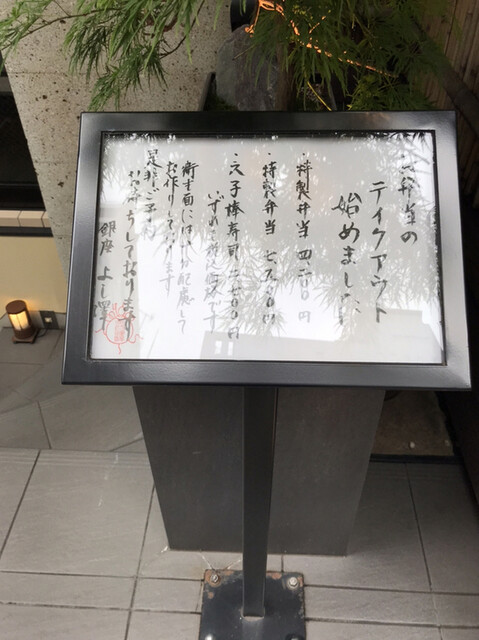 テイクアウト
始めました
・特製弁当 四、二〇〇円
・特製弁当 七、五〇〇円
・穴子棒寿司 二、七〇〇円
いずれも税込価格です
衛生面には十分配慮して
お作りしております
是非、ご予約
お待ちしております
銀座 よし澤